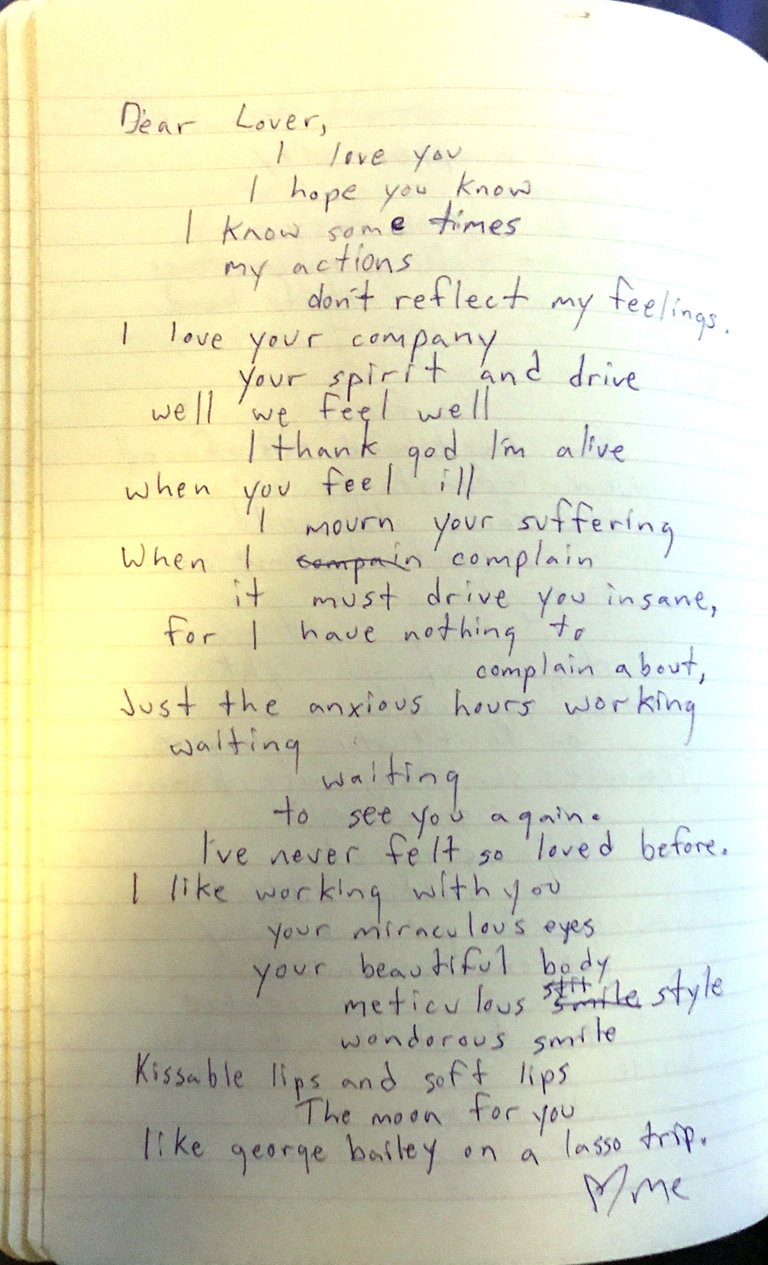 Dear Lover,
I love you
I hope you know
I know some times
my actions
don't reflect my feelings.
I love your company
your spirit and drive
well we feel well
I thank god I'm alive
when you feel ill
I mourn your suffering
When I compain complain
it must drive you insane,
for I have nothing to
complain about,
Just the anxious hours working
waiting
waiting
to see you again.
I've never felt so loved before.
I like working with you
your miraculous eyes
your beautiful body
meticulous smile style
wonderous smile
Kissable lips and soft lips
The moon for you
like george bailey on a lasso trip.
♡ me